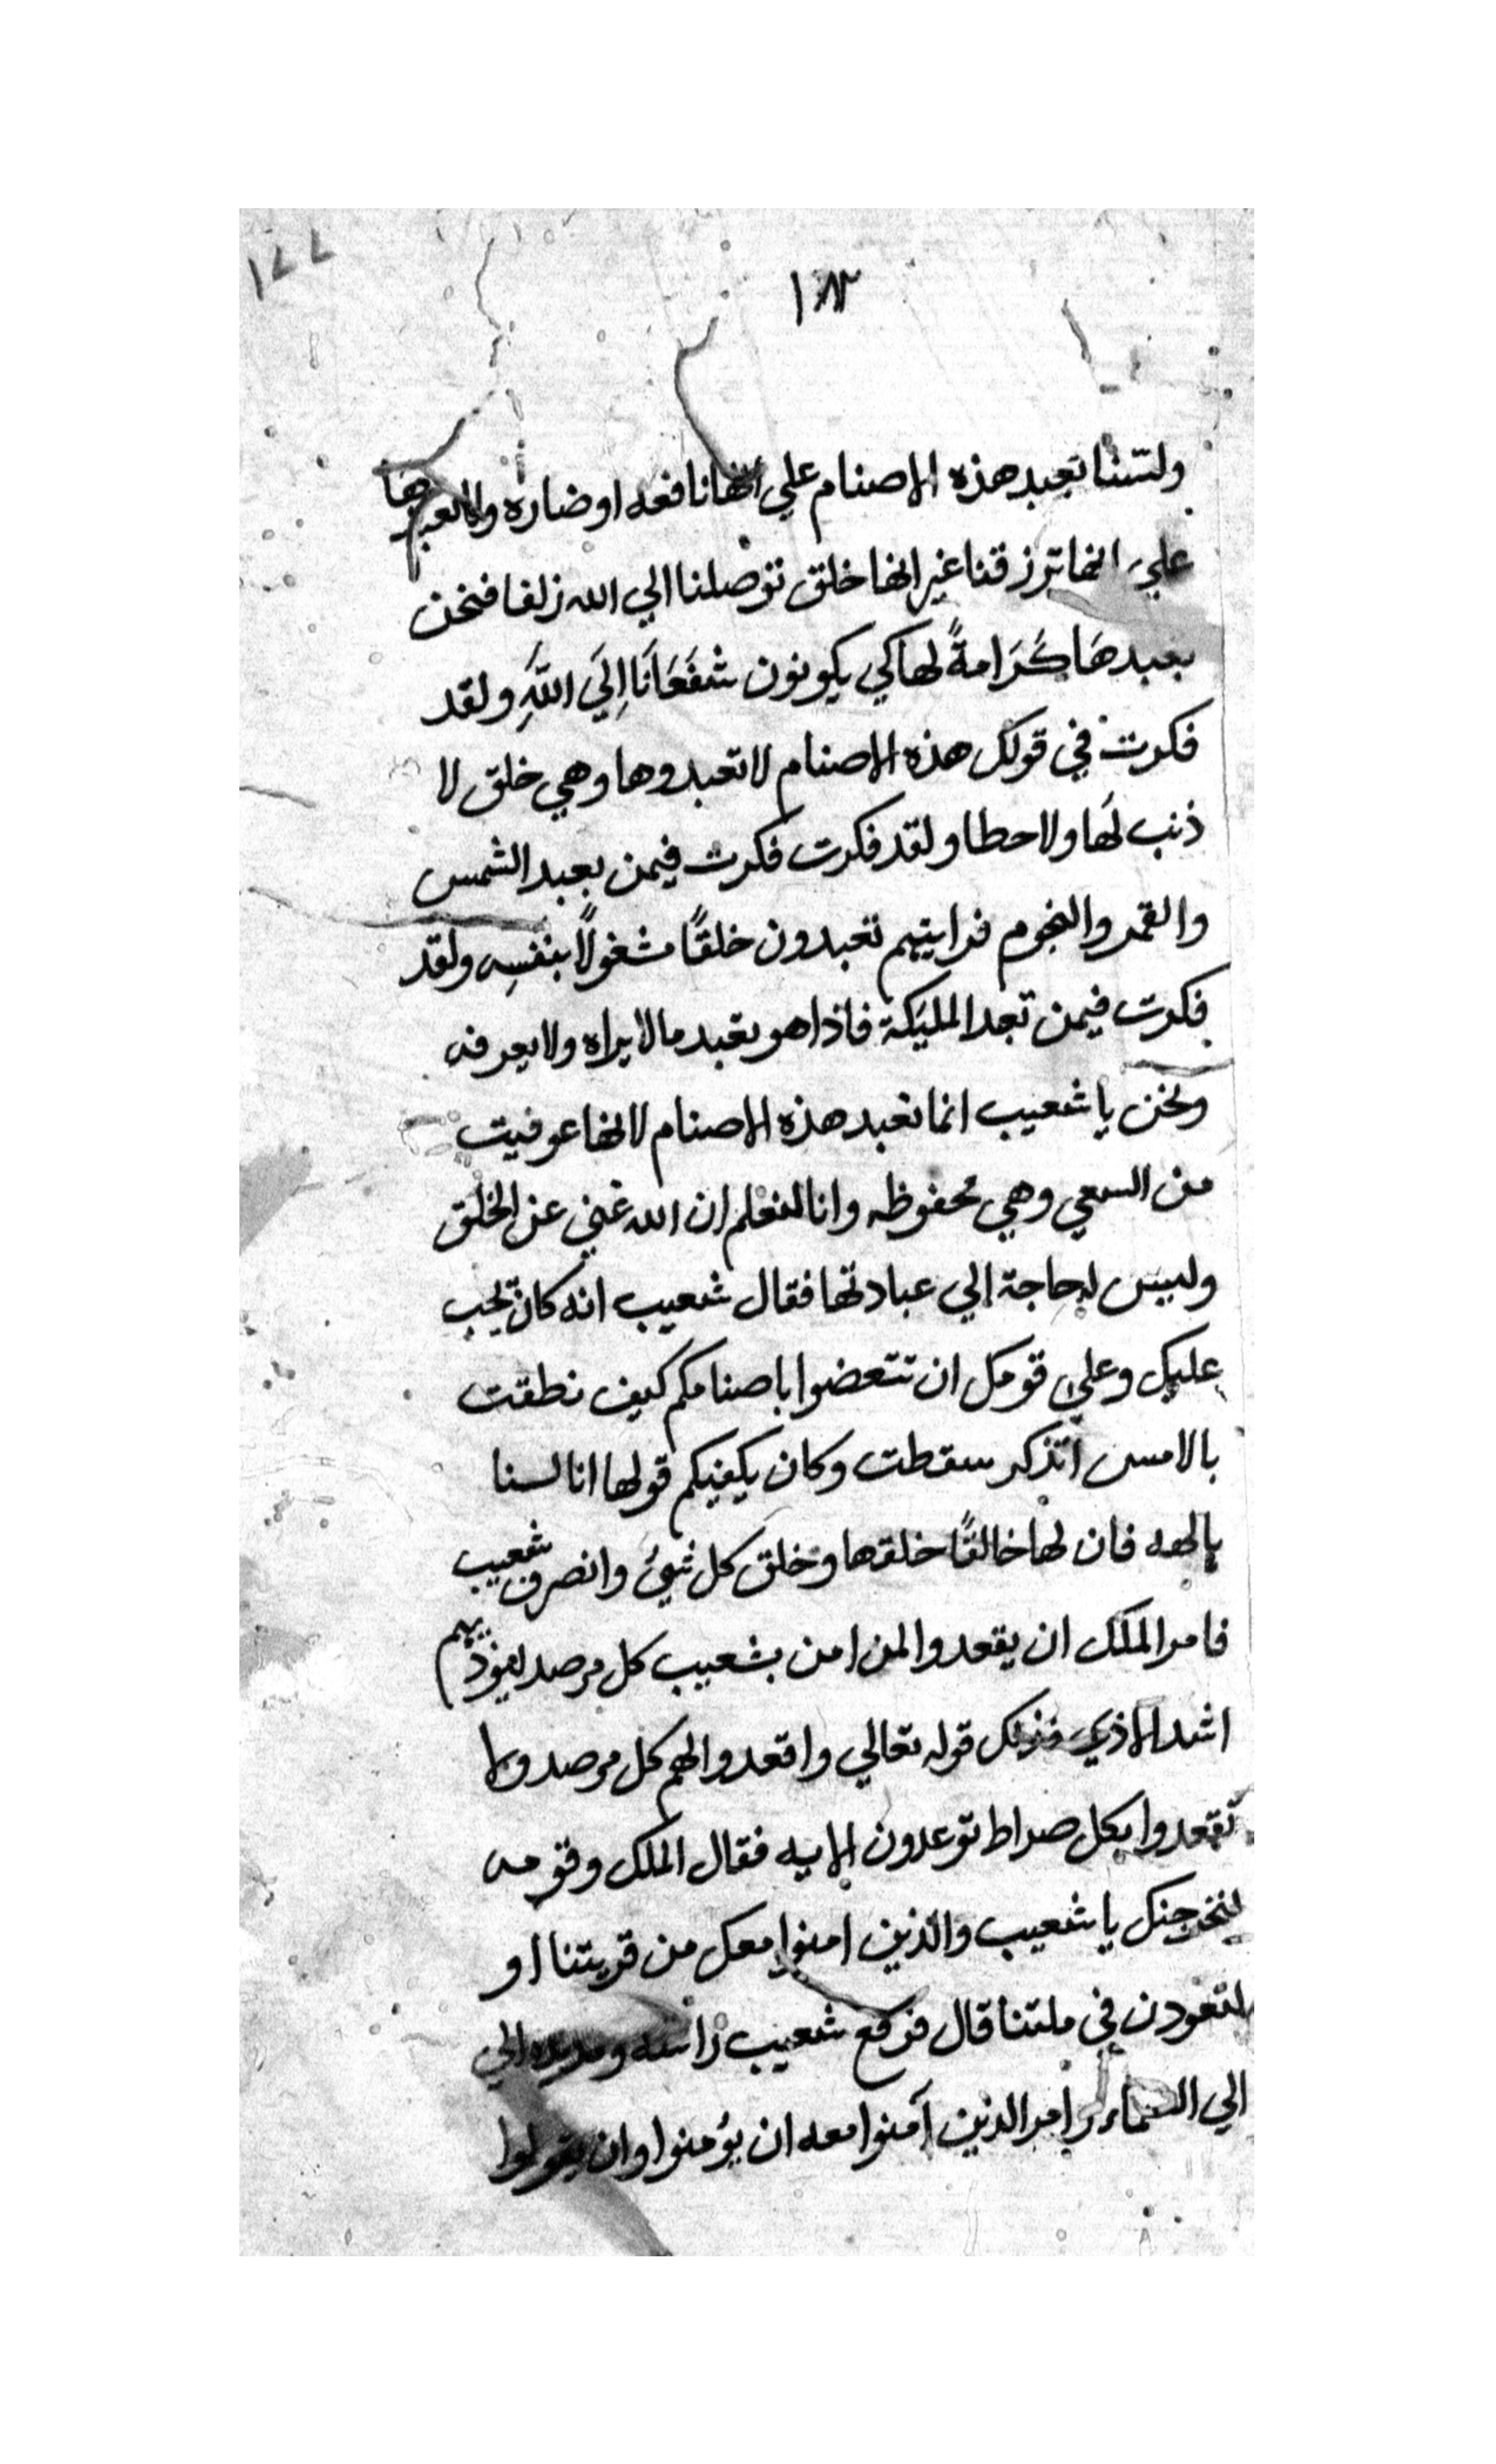 ١٨٣
١٧٧
ولسنا نعبد هذه الاصنام علي انها نافعه او ضاره ولا نعبدها
علي انها ترزقنا غير انها خلق توصلنا الي الله زلفا فنحن
نعبدهَا كَرَامةً لها كي يكونون شفَعَانَا اِلَي اللَّهِ ولقد
فكرت في قولك هذه الاصنام لا تعبدوها وهي خلق لا
ذنب لَها ولا حطا ولقد فكرت فكرت فيمن يعبد الشمس
والقمر والنجوم فرايتهم تعبدون خلقًا مشغولاً بنفسِه ولقد
فكرت فيمن تعبد المليكة فاذا هو يعبد ما لا يراه ولا يعرفه
ونحن يا شعيب انما نعبد هذه الاصنام لانها عوفيت
من السعي وهي محفوظه وانا لنعلم ان الله غني عن الخلق
وليس له حاجة الي عبادتها فقال شعيب انه كان يجب
عليك وعلي قومك ان تتعضوا باصنامكم كيف نطقت
بالامس اتذكر سقطت وكان يكفيكم قولها انا لسنا
بالهه فان لها خالقًا خلقها وخلق كل شيئ وانصرف شعيب
فامر الملك ان يقعدوا لمن امن بشعيب كل مرصد ليوذيهم
اشد الاذي فذلك قوله تعالي واقعدوا لهم كل مرصد ولا
تقعدوا بكل صراط توعدون الايه فقال الملك وقومه
لنخرجنك يا شعيب والذين امنوا معك من قريتنا او
لتعودن في ملتنا قال فرفع شعيب راسه ويديه الي
الي السماء وامر الذين آمنوا معه ان يؤمنوا وان يقولوا